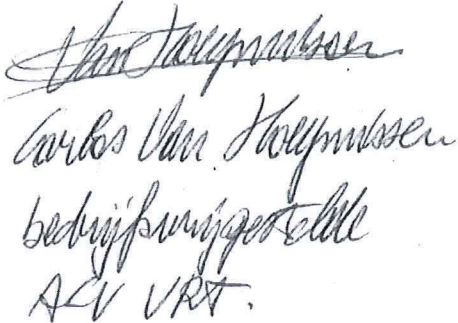 Van Hoeymissen
Carlos Van Hoeymissen
bedrijfsvrijgestelde
ACV VRT.